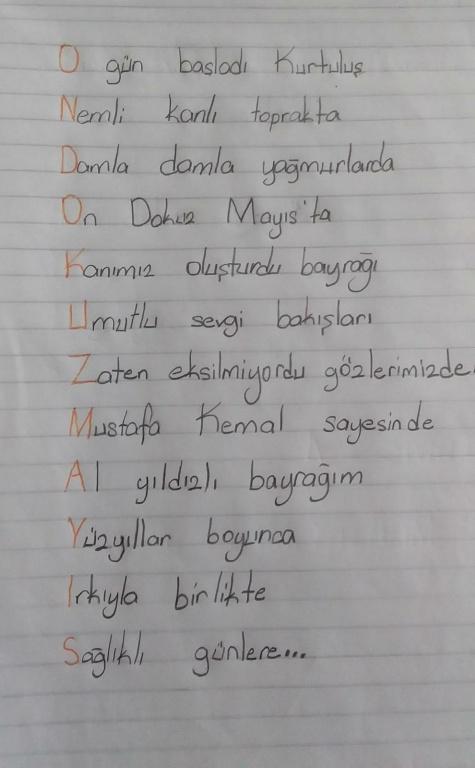 O gün basladı Kurtuluş
Nemli kanlı toprakta
Damla damla yağmurlarda
On Dokuz Mayıs'ta
Kanımız oluşturdu bayrağı
Umutlu sevgi bakışları
Zaten eksilmiyordu gözlerimizde.
Mustafa Kemal sayesinde
Al yıldızlı bayrağım
Yüzyıllar boyunca
Irkıyla birlikte
Sağlıklı günlere...